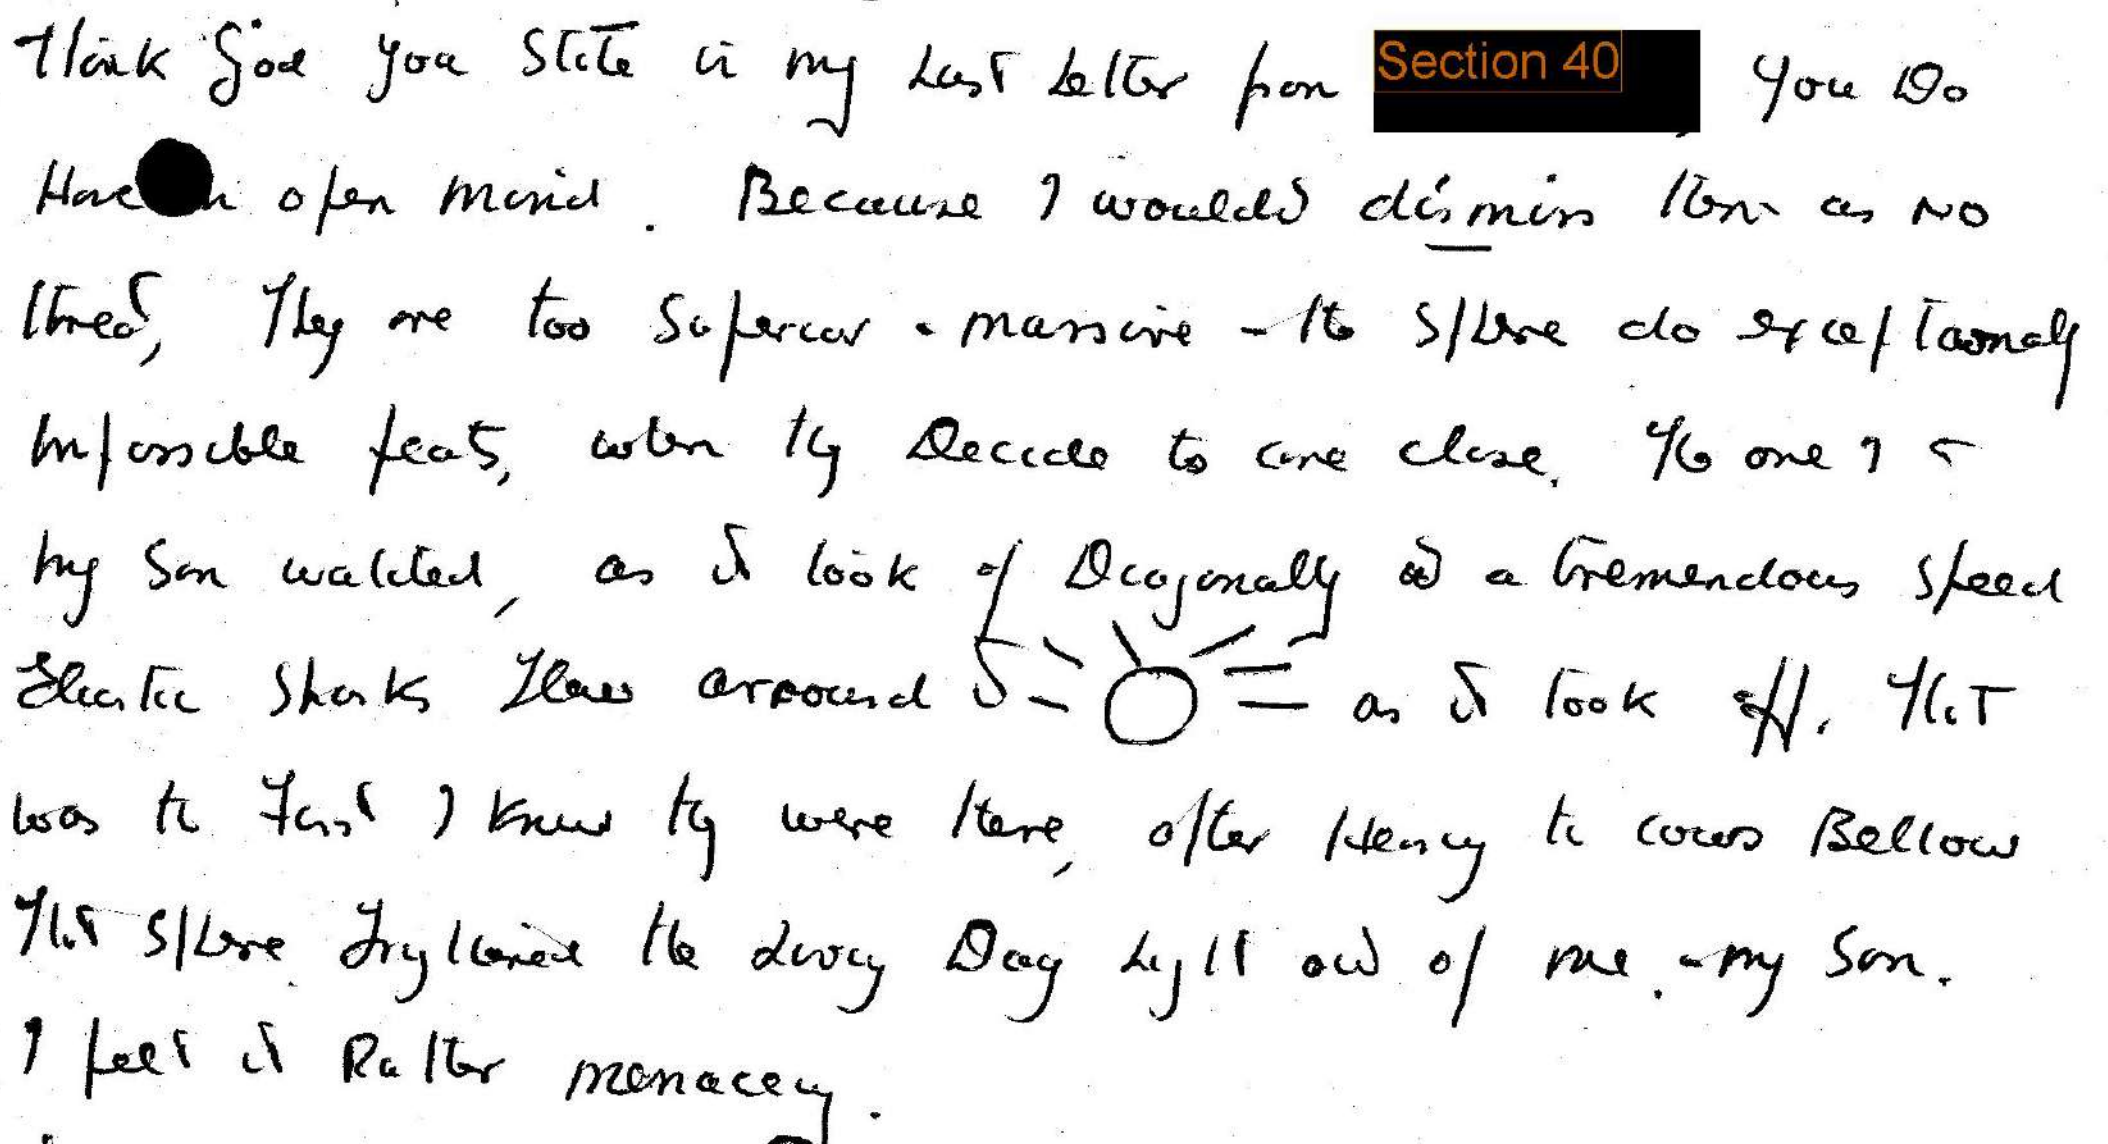 Thank God you State in my Last Letter from Section 40, you Do
Have an open mind. Because I wouldn't dismiss them as NO
threat, They are too Superior - massive - the Sphere do exceptionally
Impossible feats, when they Decide to come close. The one I +
my Son watched, as it took off Diagonally at a tremendous Speed
Electric Sparks Flew around it as it took off. That
was the First I knew they were there, after Hearing the cows Bellow
That Sphere Frightened the Living Day Light out of me - my Son.
I felt it Rather menacing.